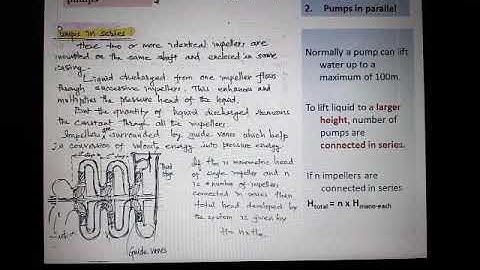 pumps
2. Pumps in parallel
Pumps in series:
Here two or more identical impellers are
mounted on the same shaft and enclosed in same
casing.
Liquid discharged from one impeller flows
through successive impellers. This enhances and
multiplies the pressure head of the liquid.
But the quantity of liquid discharged remains
the constant through all the impellers.
Impellers are surrounded by guide vanes which help
in conversion of velocity energy into pressure energy.
If Hm is manometric head
of single impeller and n
is number of impellers
connected in series then
total head developed by
the system is given by
Guide vanes
Normally a pump can lift
water up to a
maximum of 100m.
To lift liquid to a larger
height, number of
pumps are
connected in series.
If n impellers are
connected in series
Htotal = n x Hmano-each